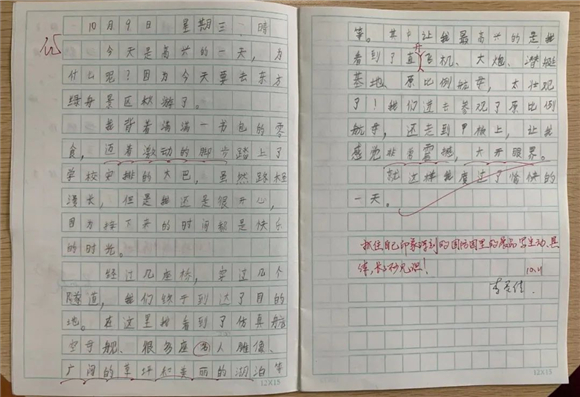 10月9日 星期三 晴
今天是高兴的一天，为
什么呢？因为今天要去东方
绿舟景区秋游了。
我背着满满一书包的零
食，迈着激动的脚步踏上了
学校安排的大巴，虽然路程
漫长，但是我还是很开心，
因为接下来的时间都是快乐
的时光。
经过几座桥，穿过几个
隧道，我们终于到达了目的
地。在这里我看到了仿真航
空母舰、很多座名人雕像、
广阔的草坪和美丽的湖泊等
等。其中让我最高兴的是我
看到了直升飞机、大炮、潜艇
基地、原比例航母，太壮观
了！我们还去参观了原比例
航母，还走到甲板上，让我
感觉非常震撼，大开眼界。
就这样我度过了愉快的
一天。
抓住自己印象深刻的国防园里的展品写生动、具
体，
10.11
12X15
12X15